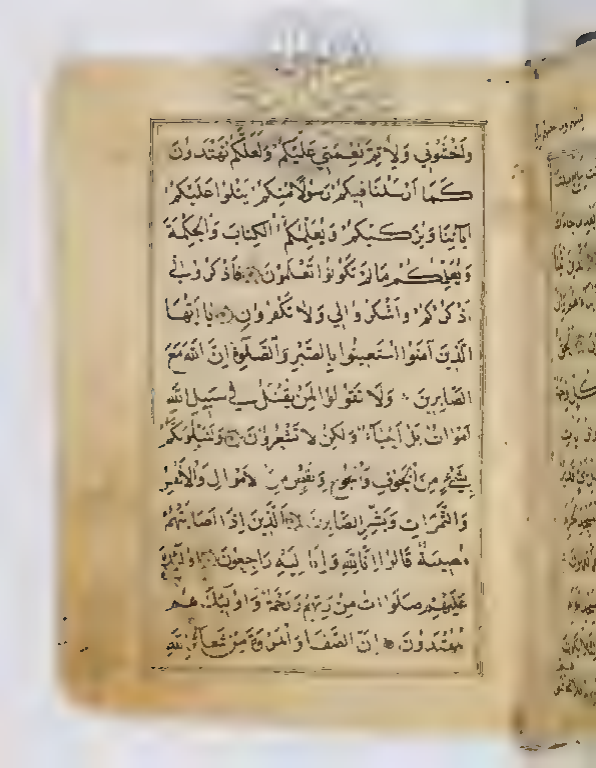 وَاخْشَوْنِي وَلِأُتِمَّ نِعْمَتِي عَلَيْكُمْ وَلَعَلَّكُمْ تَهْتَدُونَ
كَمَا أَرْسَلْنَا فِيكُمْ رَسُولًا مِنْكُمْ يَتْلُوا عَلَيْكُمْ
آيَاتِنَا وَيُزَكِّيكُمْ وَيُعَلِّمُكُمُ الْكِتَابَ وَالْحِكْمَةَ
وَيُعَلِّمُكُمْ مَا لَمْ تَكُونُوا تَعْلَمُونَ فَاذْكُرُونِي
أَذْكُرْكُمْ وَاشْكُرُوا لِي وَلَا تَكْفُرُونِ يَا أَيُّهَا
الَّذِينَ آمَنُوا اسْتَعِينُوا بِالصَّبْرِ وَالصَّلٰوةِ إِنَّ اللَّهَ مَعَ
الصَّابِرِينَ وَلَا تَقُولُوا لِمَنْ يُقْتَلُ فِي سَبِيلِ اللَّهِ
أَمْوَاتٌ بَلْ أَحْيَاءٌ وَلَكِنْ لَا تَشْعُرُونَ وَلَنَبْلُوَنَّكُمْ
بِشَيْءٍ مِنَ الْخَوْفِ وَالْجُوعِ وَنَقْصٍ مِنَ الْأَمْوَالِ وَالْأَنْفُسِ
وَالثَّمَرَاتِ وَبَشِّرِ الصَّابِرِينَ الَّذِينَ إِذَا أَصَابَتْهُمْ
مُصِيبَةٌ قَالُوا إِنَّا لِلَّهِ وَإِنَّا إِلَيْهِ رَاجِعُونَ أُولَئِكَ
عَلَيْهِمْ صَلَوَاتٌ مِنْ رَبِّهِمْ وَرَحْمَةٌ وَأُولَئِكَ هُمُ
الْمُهْتَدُونَ إِنَّ الصَّفَا وَالْمَرْوَةَ مِنْ شَعَائِرِ اللَّهِ